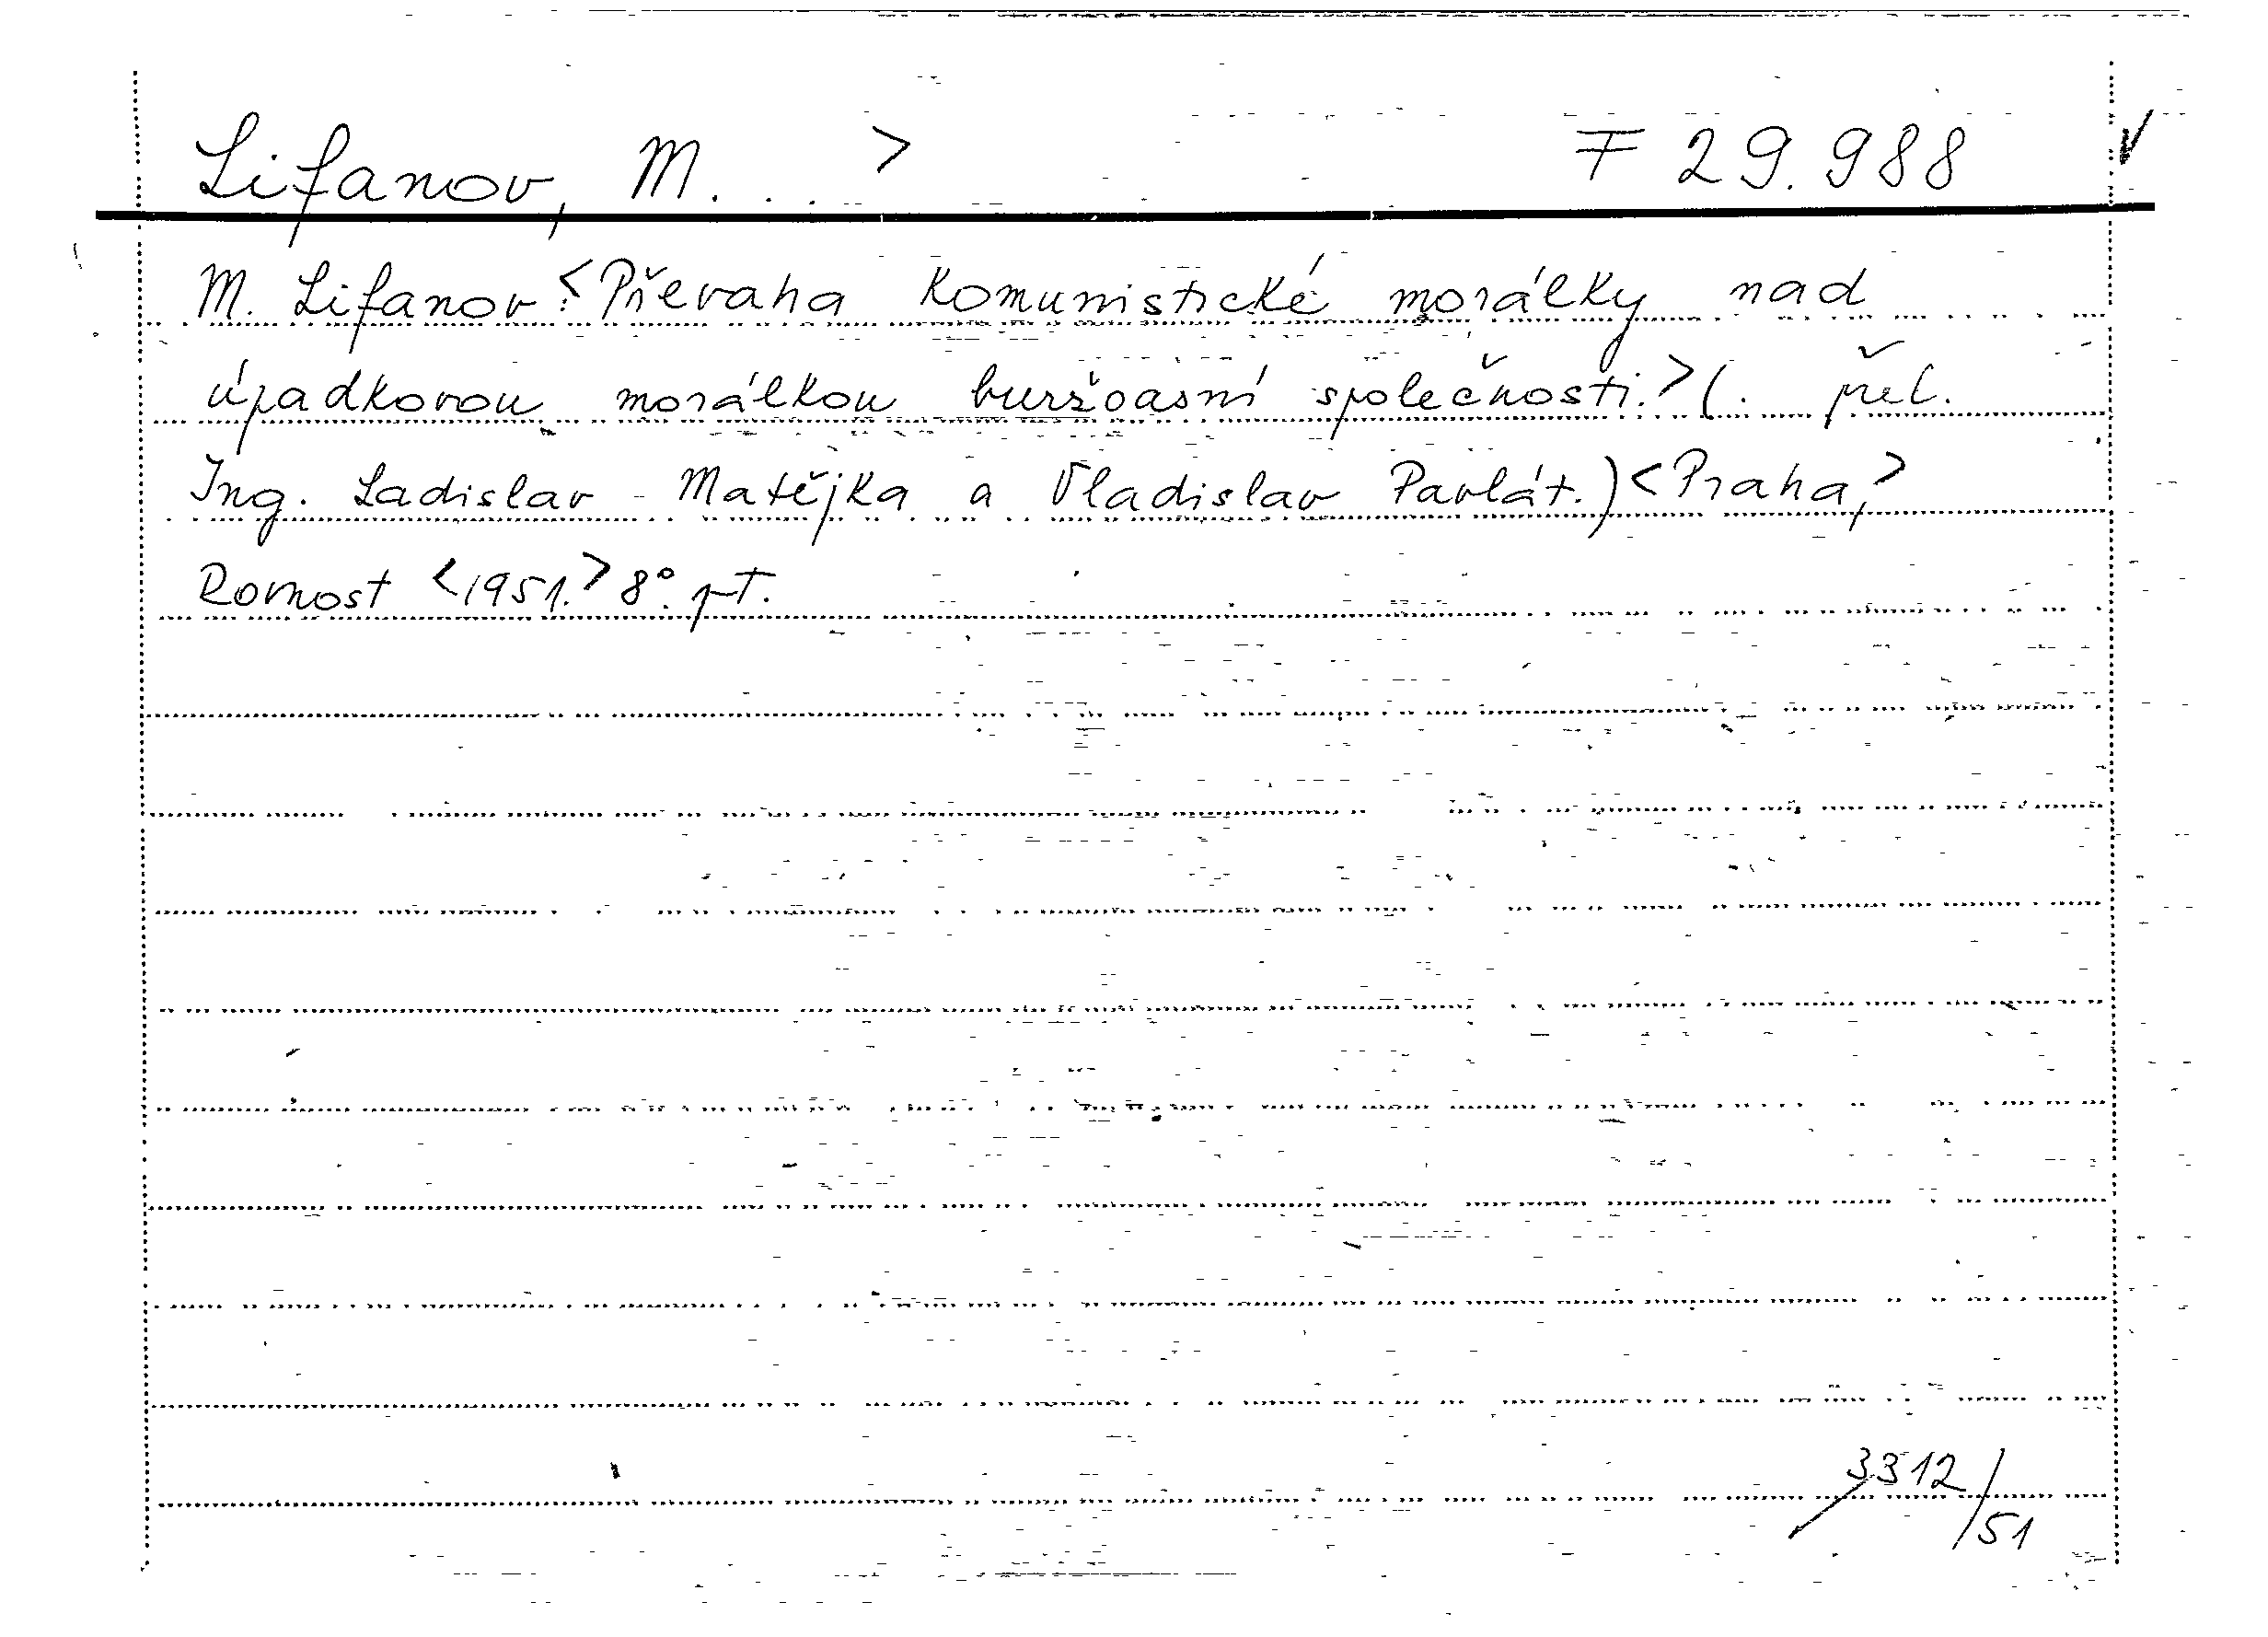 Lifanov, M. . . >
F 29.988
M. Lifanov: <Převaha komunistické morálky nad
úpadkovou morálkou buržoasní společnosti.> (. přel.
Ing. Ladislav Matějka a Vladislav Pavlát.) <Praha,>
Rovnost <1951.> 8°. pT.
3312/51